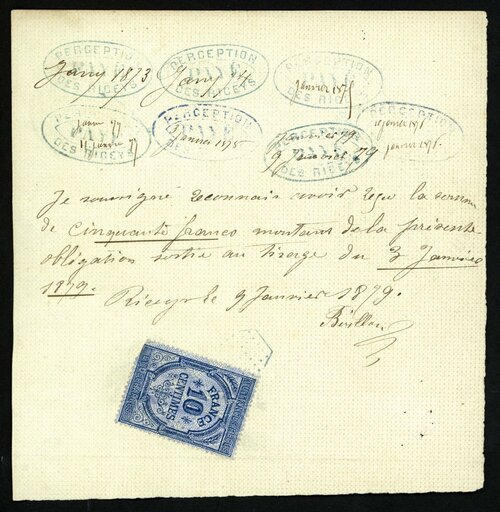 PERCEPTION PAYÉ DES RICEYS
Janv 1873
PERCEPTION PAYÉ DES RICEYS
Janv 74
PERCEPTION PAYÉ DES RICEYS
Janvier 1875
PERCEPTION PAYÉ DES RICEYS
PERCEPTION PAYÉ
Janvier 1878
PAYÉ DES RICEYS
9 Janvier 79
PERCEPTION
janvier
Je soussigné reconnais avoir reçu la somme
de cinquante francs montant de la présente
obligation sortie au tirage du 3 Janvier
1879.
Riceys le 9 Janvier 1879.
FRANCE
10
CENTIMES